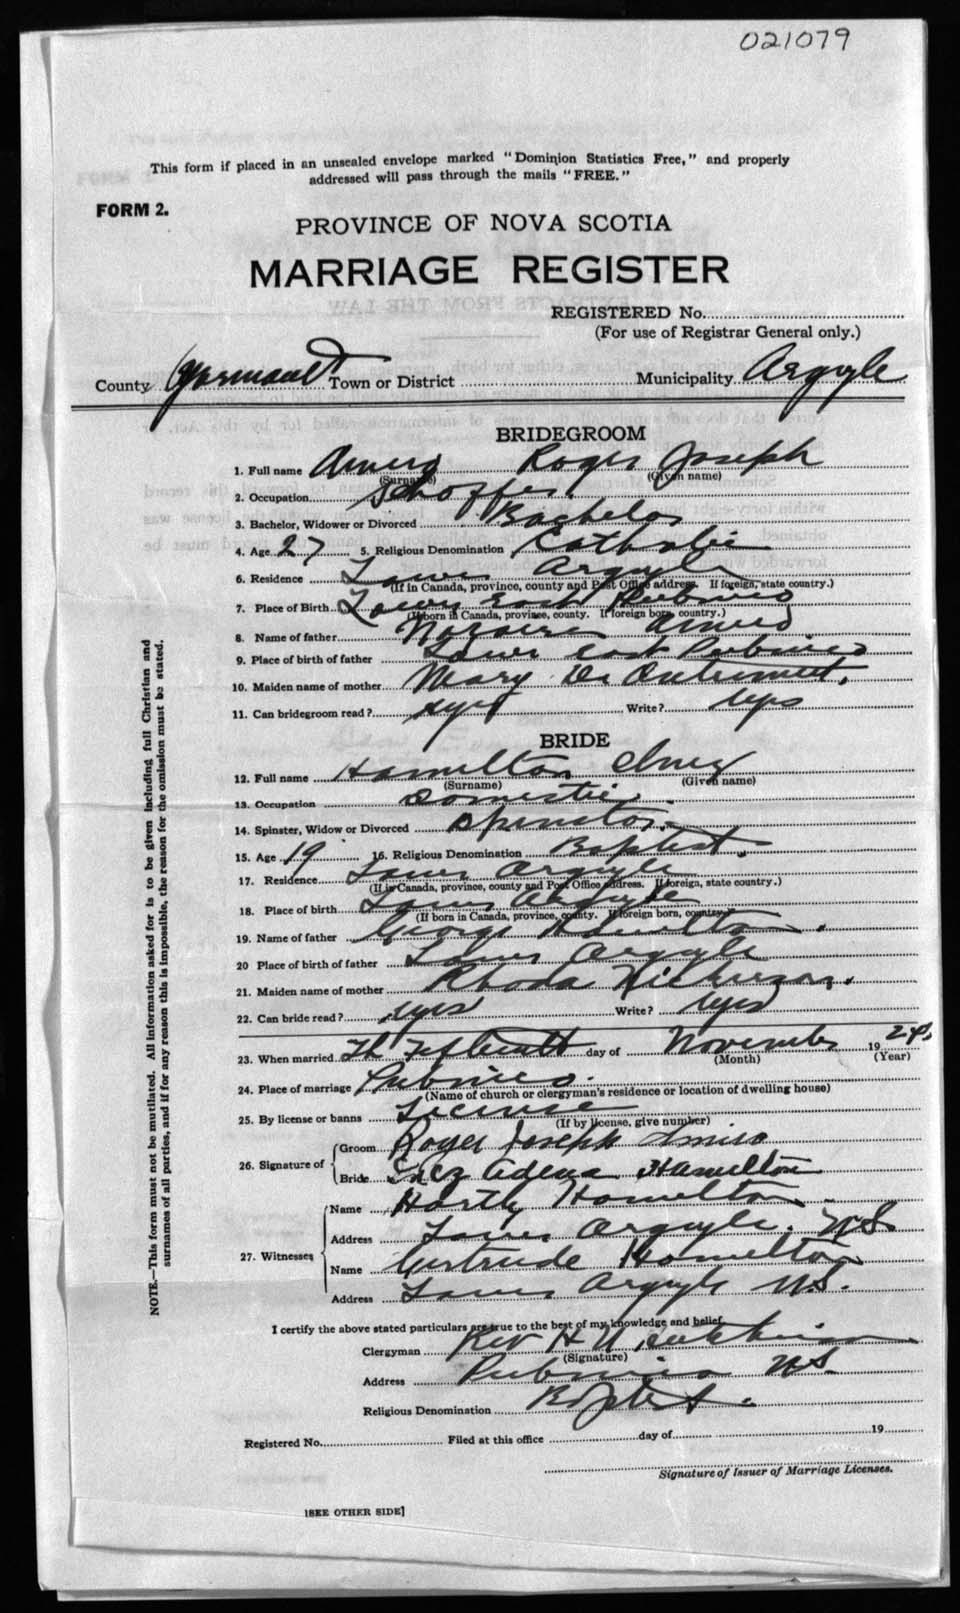 021079
This form if placed in an unsealed envelope marked "Dominion Statistics Free," and properly
addressed will pass through the mails "FREE."
FORM 2.
PROVINCE OF NOVA SCOTIA
MARRIAGE REGISTER
REGISTERED No.
(For use of Registrar General only.)
County Yarmouth Town or District Municipality Argyle
BRIDEGROOM
1. Full name Amero Roger Joseph
(Surname) (Given name)
2. Occupation Schoffer.
3. Bachelor, Widower or Divorced Bachelor
4. Age 27 5. Religious Denomination Catholic
6. Residence Lower Argyle
(If in Canada, province, county and Post Office address. If foreign, state country.)
7. Place of Birth Lower East Pubnico
(If born in Canada, province, county. If foreign born, country.)
8. Name of father Amero
9. Place of birth of father Lower East Pubnico
10. Maiden name of mother Mary
11. Can bridegroom read? yes Write? yes
BRIDE
12. Full name Hamilton Inez
(Surname) (Given name)
13. Occupation Domestic.
14. Spinster, Widow or Divorced Spinster.
15. Age 19 16. Religious Denomination Baptist.
17. Residence Lower Argyle
(If in Canada, province, county and Post Office address. If foreign, state country.)
18. Place of birth Lower Argyle
(If born in Canada, province, county. If foreign born, country.)
19. Name of father George Hamilton.
20 Place of birth of father Lower Argyle
21. Maiden name of mother Rhoda Nickerson.
22. Can bride read? yes Write? yes
23. When married day of November 19
(Month) (Year)
24. Place of marriage Pubnico.
(Name of church or clergyman's residence or location of dwelling house)
25. By license or banns License
(If by license, give number)
26. Signature of Groom Roger Joseph Amiro
Bride Inez Adena Hamilton
27. Witnesses Name Hamilton
Address Lower Argyle. N.S.
Name Gertrude Hamilton
Address Lower Argyle N.S.
I certify the above stated particulars are true to the best of my knowledge and belief.
Clergyman Rev H
(Signature)
Address Pubnico N.S.
Religious Denomination Baptist.
Registered No. Filed at this office day of 19
Signature of Issuer of Marriage Licenses.
[SEE OTHER SIDE]
NOTE.—This form must not be mutilated. All information asked for is to be given including full Christian and
surnames of all parties, and if for any reason this is impossible, the reason for the omission must be stated.